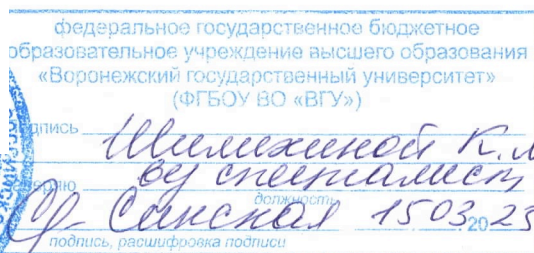 федеральное государственное бюджетное
образовательное учреждение высшего образования
«Воронежский государственный университет»
(ФГБОУ ВО «ВГУ»)
дпись Шилихиной К.М
веряю ву специалист
должность
Санская 15 03 2023
подпись, расшифровка подписи